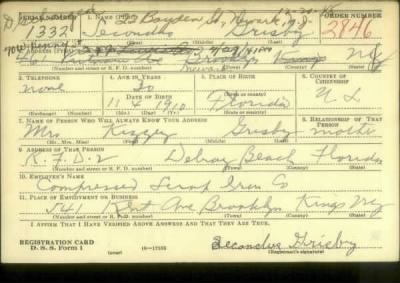 SERIAL NUMBER 1. NAME (Print) 22 Boyden St, Newark, N.J. 12-20-45 ORDER NUMBER
1332 Secondus Grisby 2846
(First) (Middle) (Last)
2. ADDRESS (Print)
461 Ave Brooklyn Kings NY
(Number and street or R. F. D. number) (Town) (County) (State)
3. TELEPHONE 4. AGE IN YEARS 5. PLACE OF BIRTH 6. COUNTRY OF CITIZENSHIP
none 30
DATE OF BIRTH (Town or county)
11 4 1910 Florida U S
(Mo.) (Day) (Yr.) (State or country)
7. NAME OF PERSON WHO WILL ALWAYS KNOW YOUR ADDRESS 8. RELATIONSHIP OF THAT PERSON
Mrs Kizzey Grisby mother
(Mr., Mrs., Miss) (First) (Middle) (Last)
9. ADDRESS OF THAT PERSON
R.F.D-2 Delray Beach Florida
(Number and street or R. F. D. number) (Town) (County) (State)
10. EMPLOYER'S NAME
Compressed Scrap Iron Co
11. PLACE OF EMPLOYMENT OR BUSINESS
541 Kent Ave Brooklyn Kings NY
(Number and street or R. F. D. number) (Town) (County) (State)
I AFFIRM THAT I HAVE VERIFIED ABOVE ANSWERS AND THAT THEY ARE TRUE.
REGISTRATION CARD
D. S. S. Form 1 (over) 16-17105 Secondus Grisby
(Registrant's signature)